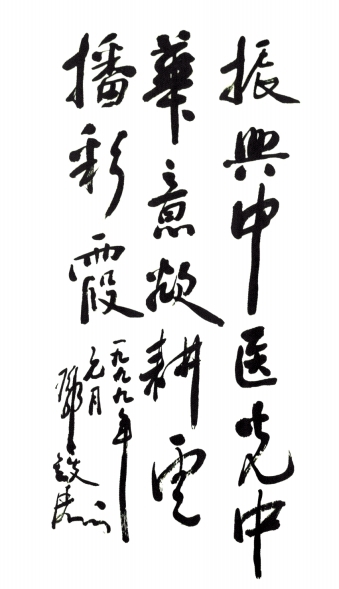 振興中医光中
華意欲耕雲
播彩霞
一九九九年
元月